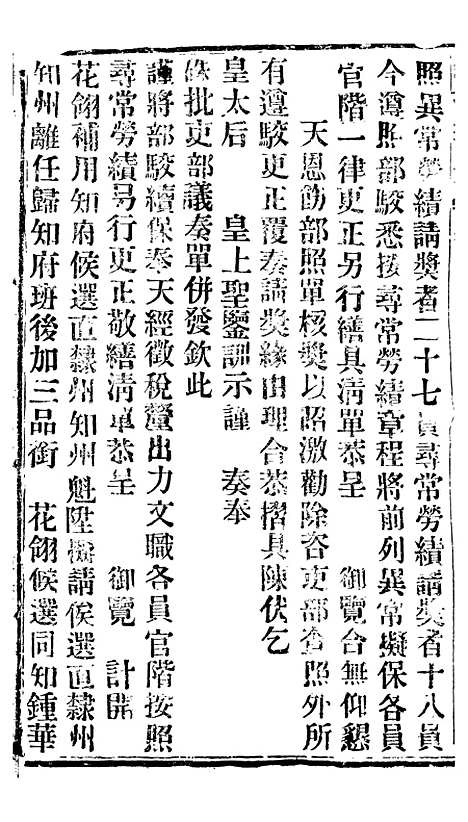 照異常勞績請奬者二十七員尋常勞績請奬者十八員
今遵照部駮悉按尋常勞績章程將前列異常擬保各員
官階一律更正另行繕具淸單恭呈　御覽合無仰懇
天恩飭部照單核奬以昭激勸除咨吏部查照外所
有遵駮更正覆奏請奬緣由理合恭摺具陳伏乞
皇太后　皇上聖鑒訓示謹　奏奉
硃批吏部議奏單併發欽此
謹將部駮續保奉天經徵稅釐出力文職各員官階按照
尋常勞績另行更正敬繕淸單恭呈　御覽　計開
花翎補用知府候選直隸州知州魁陞擬請俟選直隸州
知州離任歸知府班後加三品銜　花翎候選同知鍾華